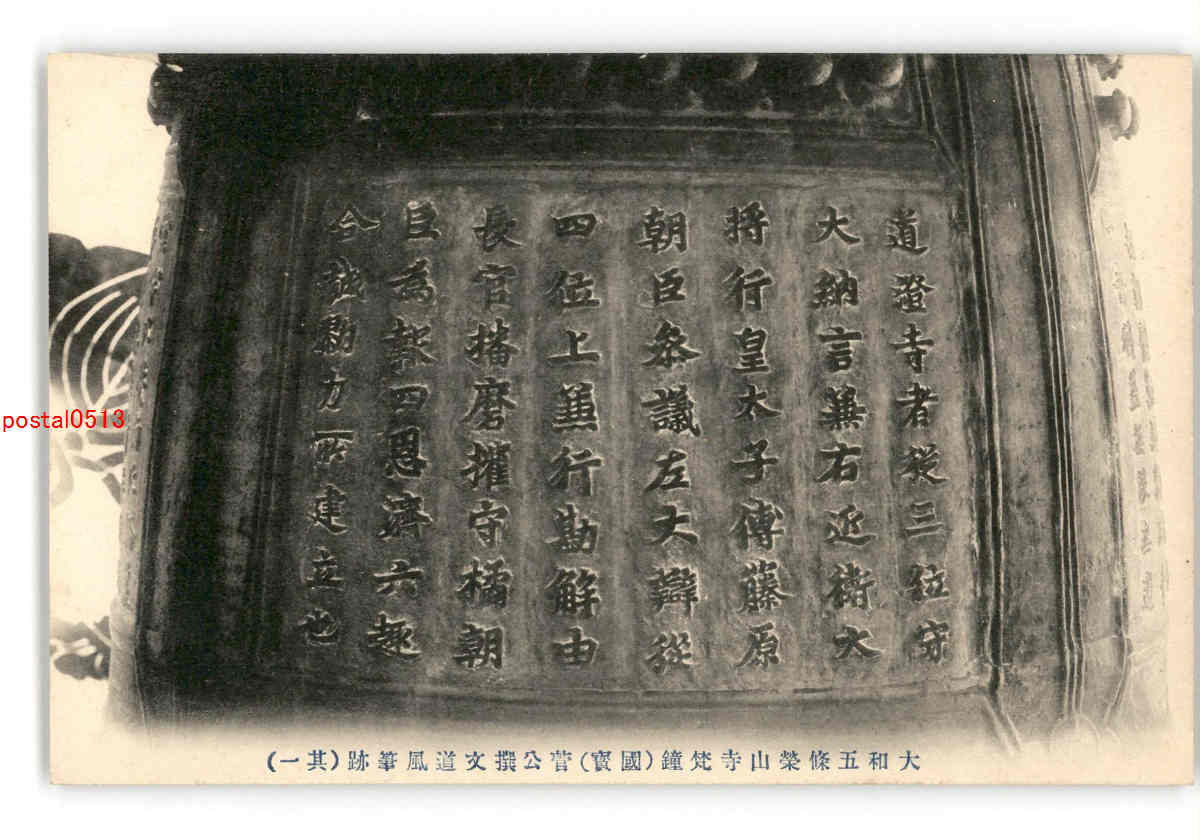 道澄寺者從三位守
大納言兼右近衛大
將行皇太子傅藤原
朝臣叅議左大辨從
四位上兼行勘解由
長官播磨權守橘朝
臣為報四恩濟六趣
今戮力所建立也
大和五條榮山寺梵鐘(國寶)菅公撰文道風筆跡(其一)
postal0513